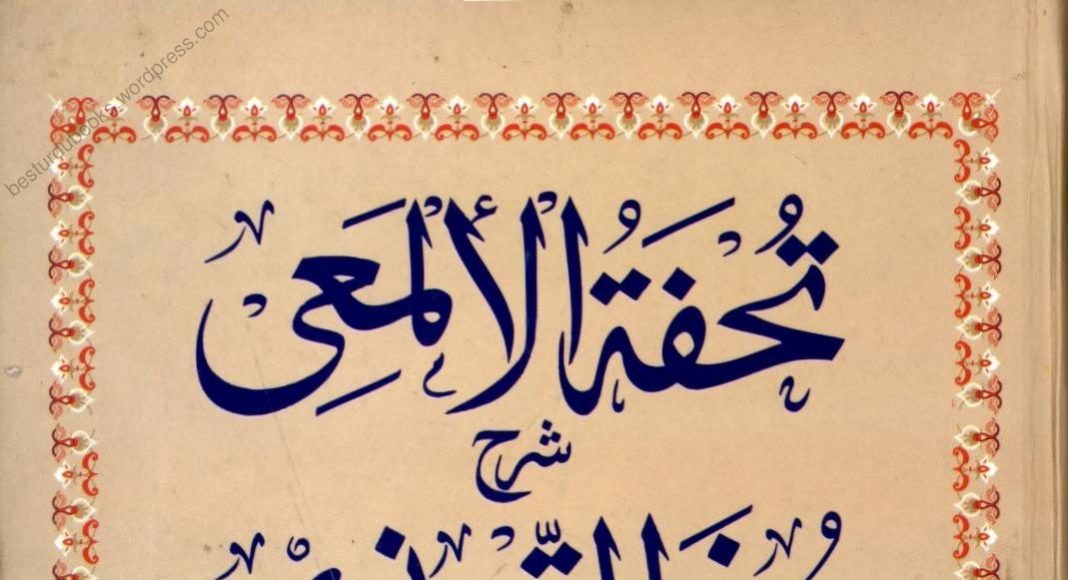 besturdubooks.wordpress.com
تُحْفَةُ الْأَلْمَعِی
شرح